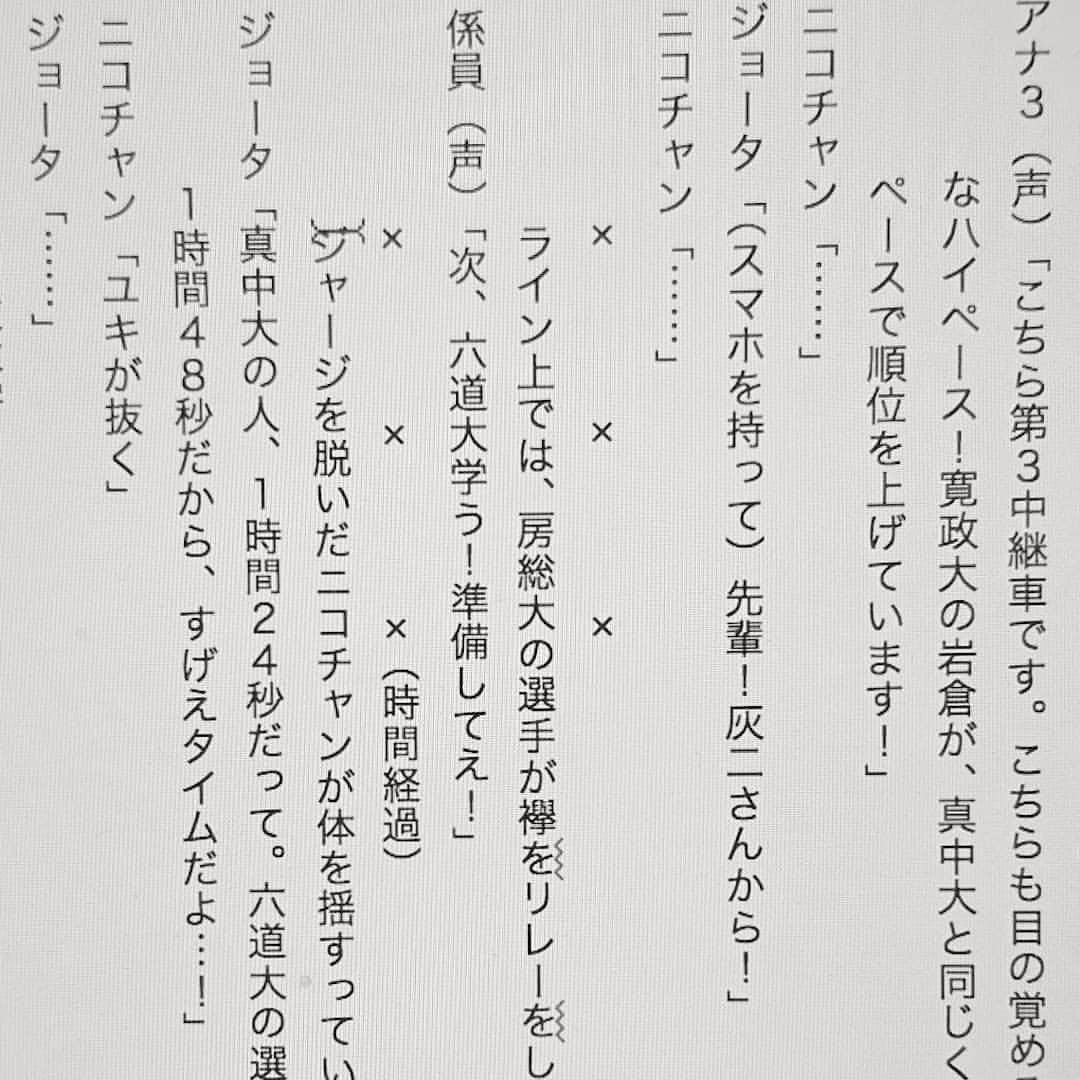 アナ３（声）「こちら第３中継車です。こちらも目の覚め
なハイペース！寛政大の岩倉が、真中大と同じく
ペースで順位を上げています！」
ニコチャン「……」
ジョータ「（スマホを持って）先輩！灰二さんから！」
ニコチャン「……」
× × ×
ライン上では、房総大の選手が襷をリレーをし
係員（声）「次、六道大学う！準備してえ！」
× × ×（時間経過）
ジャージを脱いだニコチャンが体を揺すってい
ジョータ「真中大の人、１時間２４秒だって。六道大の選
１時間４８秒だから、すげえタイムだよ…！」
ニコチャン「ユキが抜く」
ジョータ「……」